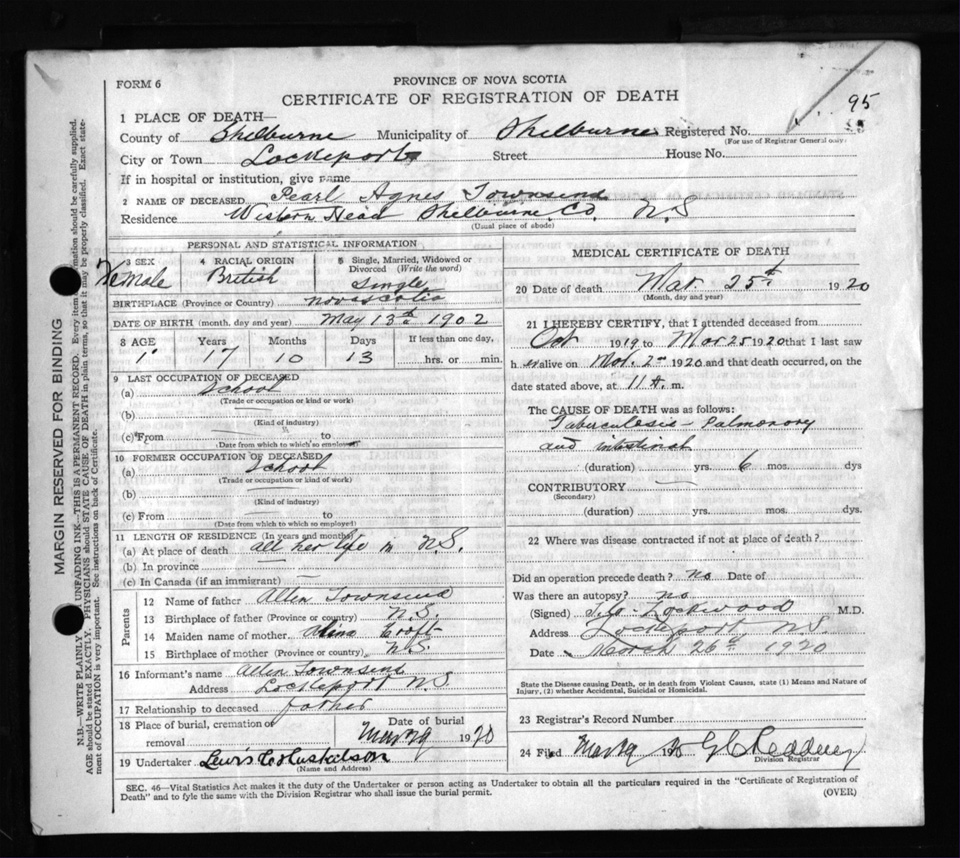 FORM 6
PROVINCE OF NOVA SCOTIA
CERTIFICATE OF REGISTRATION OF DEATH
95
1 PLACE OF DEATH—
County of Shelburne Municipality of Shelburne Registered No.
(For use of Registrar General only)
City or Town Lockeport Street House No.
If in hospital or institution, give name
2 NAME OF DECEASED Pearl Agnes Townsend
Residence Western Head Shelburne Co. N.S
(Usual place of abode)
PERSONAL AND STATISTICAL INFORMATION
3 SEX 4 RACIAL ORIGIN 5 Single, Married, Widowed or Divorced (Write the word)
Female British Single
BIRTHPLACE (Province or Country) Nova Scotia
DATE OF BIRTH (month, day and year) May 13th 1902
8 AGE Years Months Days If less than one day,
17 10 13 hrs. or min.
9 LAST OCCUPATION OF DECEASED
(a) School
(Trade or occupation or kind or work)
(b)
(Kind of industry)
(c) From to
(Date from which to which so employed)
10 FORMER OCCUPATION OF DECEASED
(a) School
(Trade or occupation or kind of work)
(b)
(Kind of industry)
(c) From to
(Date from which to which so employed)
11 LENGTH OF RESIDENCE (In years and months)
(a) At place of death all her life in N.S.
(b) In province
(c) In Canada (if an immigrant)
Parents
12 Name of father Allen Townsend
13 Birthplace of father (Province or country) N.S.
14 Maiden name of mother Croft
15 Birthplace of mother (Province or country) N.S.
16 Informant's name Allen Townsend
Address Lockeport N.S
17 Relationship to deceased father
18 Place of burial, cremation or removal Date of burial
1920
19 Undertaker Lewis
(Name and Address)
MEDICAL CERTIFICATE OF DEATH
20 Date of death Mar 25th 1920
(Month, day and year)
21 I HEREBY CERTIFY, that I attended deceased from
Oct 1919 to Mar 25 1920 that I last saw
her alive on 1920 and that death occurred, on the
date stated above, at 11 A. m.
The CAUSE OF DEATH was as follows:
Tuberculosis - Pulmonary
and intestinal
(duration) yrs. 6 mos. dys
CONTRIBUTORY
(Secondary)
(duration) yrs. mos. dys.
22 Where was disease contracted if not at place of death?
Did an operation precede death? no Date of
Was there an autopsy? no
(Signed) Lockwood M.D.
Address Lockeport, N.S.
Date March 26th 1920
State the Disease causing Death, or in death from Violent Causes, state (1) Means and Nature of
Injury, (2) whether Accidental, Suicidal or Homicidal.
23 Registrar's Record Number
24 Filed
Division Registrar
SEC. 46—Vital Statistics Act makes it the duty of the Undertaker or person acting as Undertaker to obtain all the particulars required in the "Certificate of Registration of
Death" and to fyle the same with the Division Registrar who shall issue the burial permit.
(OVER)
MARGIN RESERVED FOR BINDING
N.B.—WRITE PLAINLY UNFADING INK—THIS IS A PERMANENT RECORD. Every item information should be carefully supplied.
AGE should be stated EXACTLY. PHYSICIANS should STATE CAUSE OF DEATH in plain terms, so that it may be properly classified. Exact state-
ment of OCCUPATION is very important. See instructions on back of Certificate.